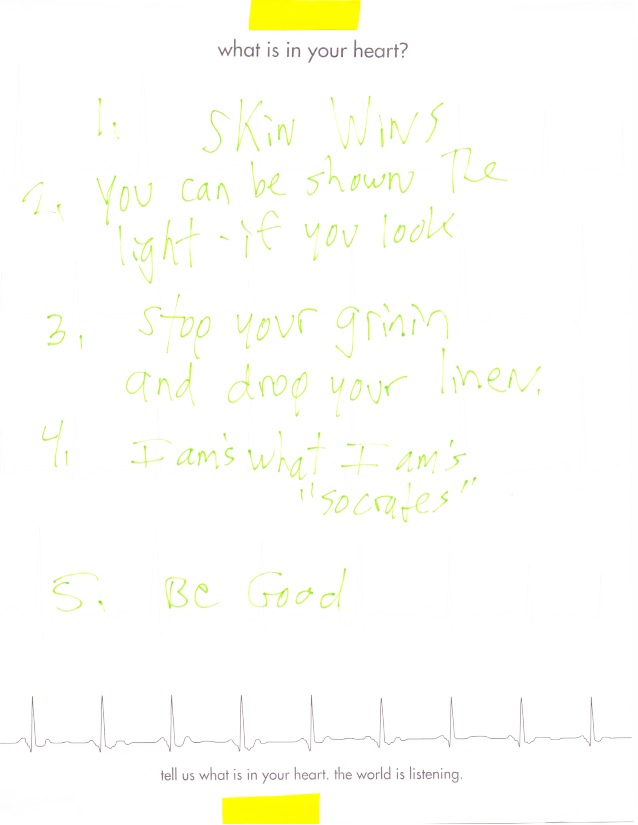 what is in your heart?
1. Skin Wins
2. You can be shown The
light - if you look
3. stop your grinin
and drop your linen.
4. I am's what I am's
"socrates"
5. Be Good
tell us what is in your heart. the world is listening.